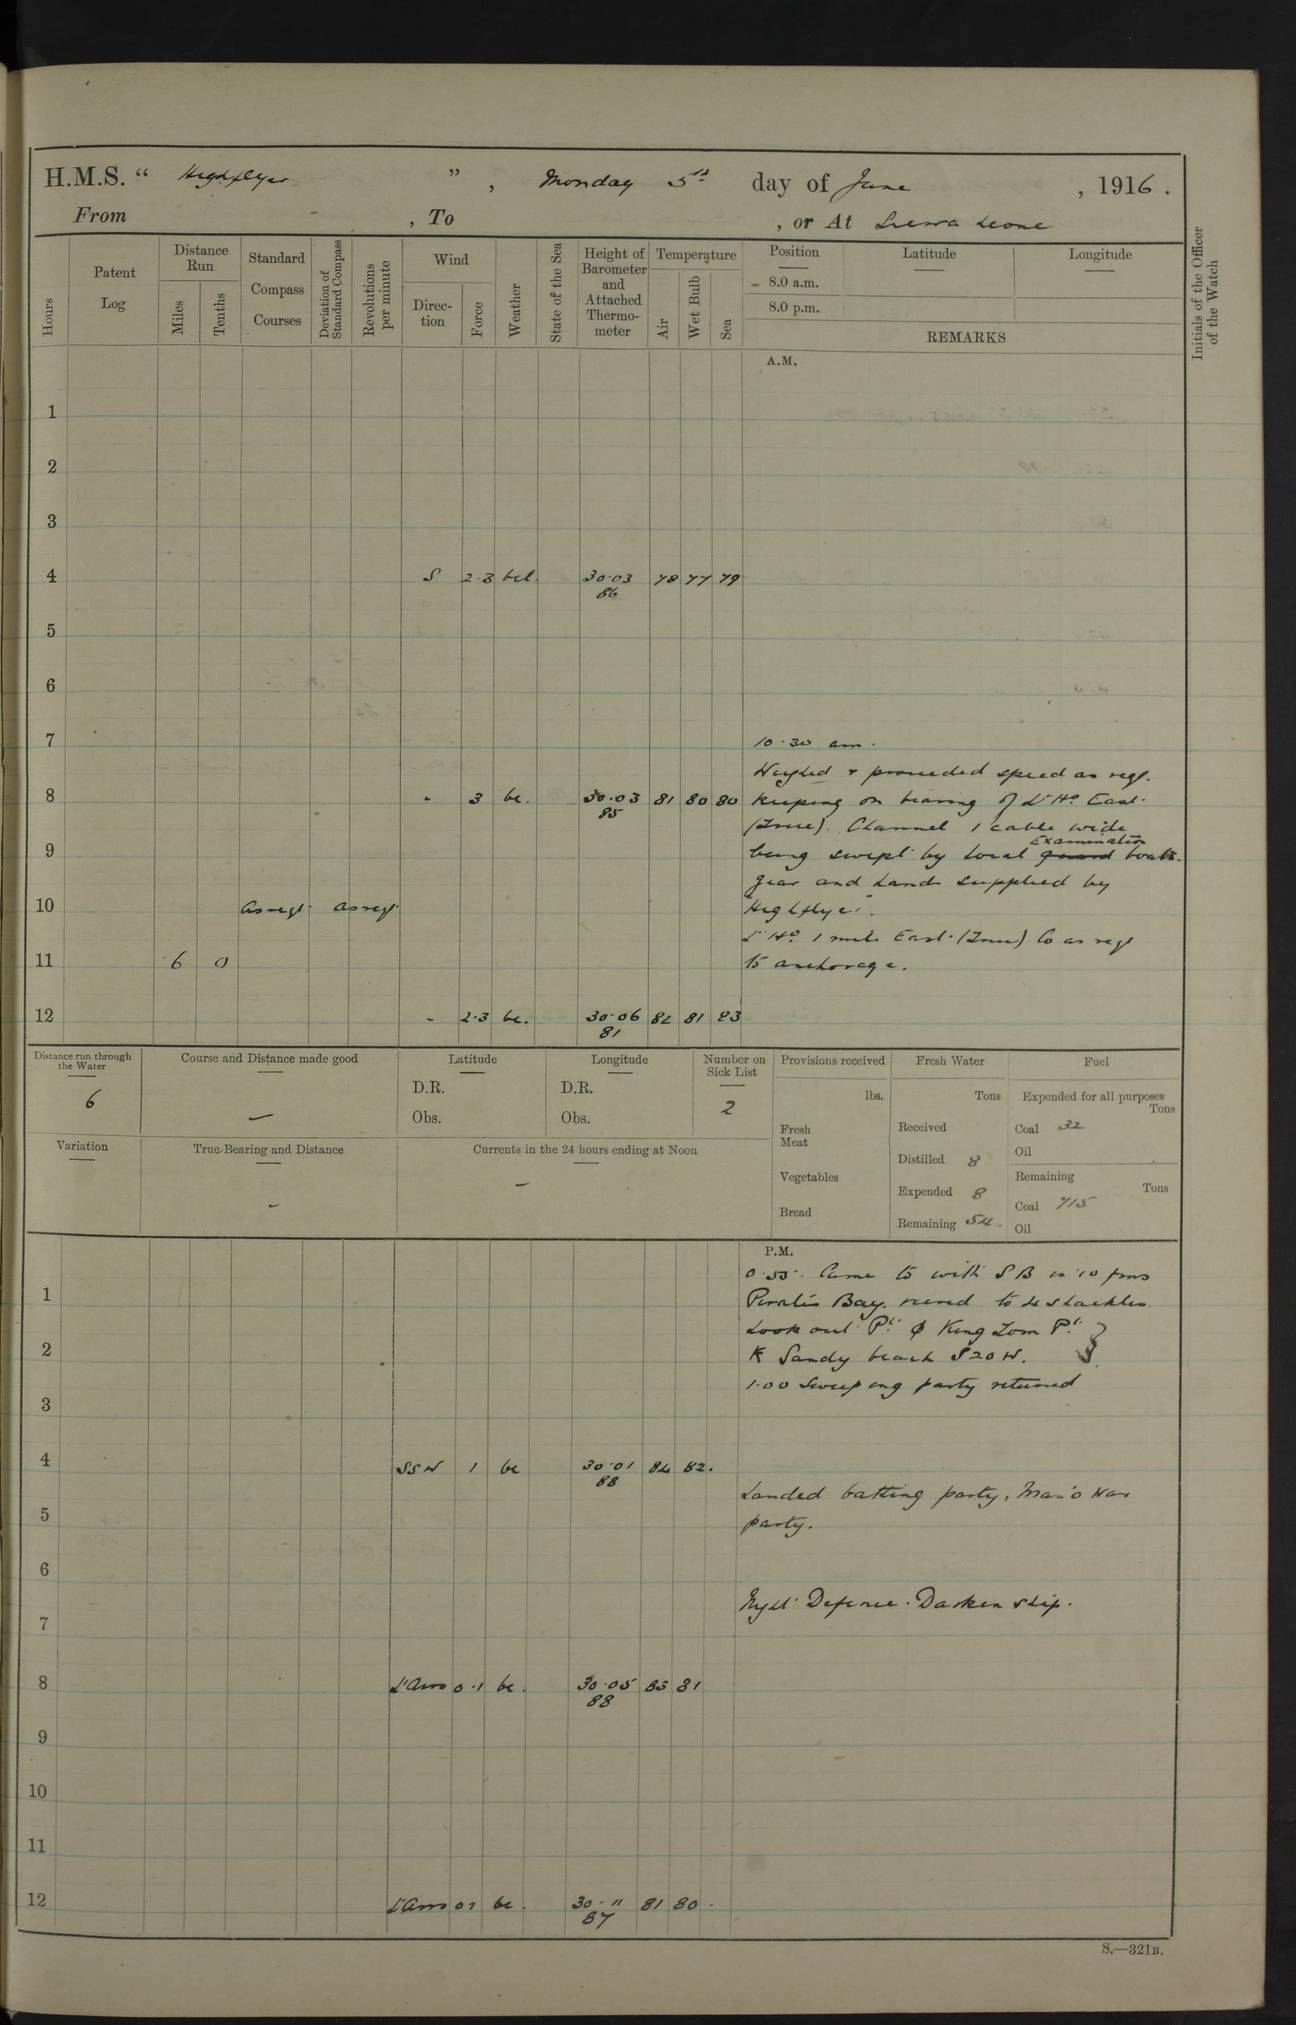 H.M.S. " Highflyer ", Monday 5th day of June, 1916.
From , To , or At Sierra Leone
Hours
Patent Log
Distance Run
Miles
Tenths
Standard Compass Courses
Deviation of Standard Compass
Revolutions per minute
Wind
Direction
Force
Weather
State of the Sea
Height of Barometer and Attached Thermometer
Temperature
Air
Wet Bulb
Sea
Position
8.0 a.m.
8.0 p.m.
Latitude
Longitude
REMARKS
Initials of the Officer of the Watch
A.M.
1
2
3
4 S 2.3 bcl. 30.03 78 77 79
86
5
6
7 10.30 am.
Weighed & proceeded speed as reqt.
8 " 3 bc. 30.03 81 80 80 Keeping on bearing of Lt Ho. East.
85
(True). Channel 1 cable wide
Examination
9 being swept by local guard boats.
gear and hands supplied by
10 as reqt as reqt "Highflyer".
Lt Ho. 1 mile East. (True) Co as reqt
11 6 0 to anchorage.
12 " 2.3 bc. 30.06 82 81 83
81
Distance run through the Water
6
Course and Distance made good
—
Latitude
D.R.
Obs.
Longitude
D.R.
Obs.
Number on Sick List
2
Variation
True Bearing and Distance
-
Currents in the 24 hours ending at Noon
-
Provisions received
lbs.
Fresh Meat
Vegetables
Bread
Fresh Water
Tons
Received
Distilled 8
Expended 8
Remaining 54.
Fuel
Expended for all purposes
Tons
Coal 32
Oil
Remaining
Tons
Coal 715
Oil
P.M.
0.55. Came to with SB in 10 fms
1 Pirates Bay. veered to 4 shackles
Look out Pt. φ King Tom Pt. }
2 K Sandy beach S20W.
1.00 Sweeping party returned
3
4 SSW 1 bc 30.01 84 82.
88
Landed bathing party, Man o War
5 party.
6
Night Defence. Darken ship.
7
8 Lt Airs 0.1 bc. 30.05 83 81
88
9
10
11
12 Lt Airs 01 bc. 30.11 81 80.
87
S.—321B.